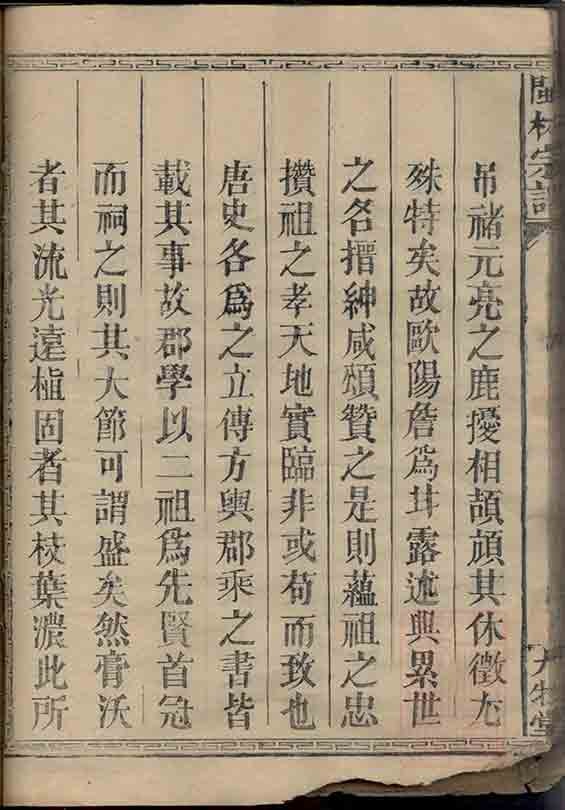 閩林宗譜
吊褚元亮之鹿擾相頡頏其休徵尤
殊特矣故歐陽詹爲甘露述與累世
之名搢紳咸頌贊之是則蘊祖之忠
攢祖之孝天地實臨非或苟而致也
唐史各爲之立傳方輿郡乘之書皆
載其事故郡學以二祖爲先賢首冠
而祠之則其大節可謂盛矣然膏沃
者其流光遠植固者其枝葉濃此所
牧堂